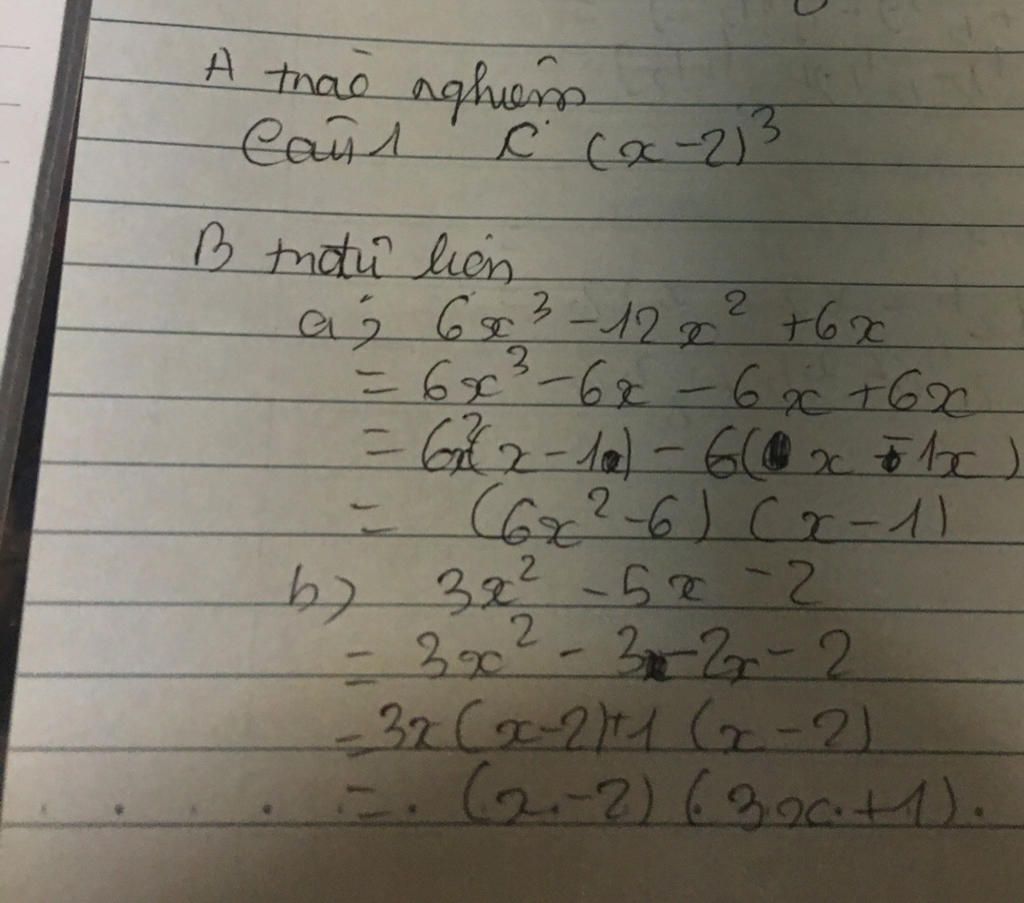 A trắc nghiệm
Câu 1 C (x-2)³
B tự luận
a, 6x³ - 12x² + 6x
= 6x³ - 6x - 6x + 6x
= 6x²(x - 1) - 6(x - 1x)
= (6x² - 6) (x - 1)
b) 3x² - 5x - 2
= 3x² - 3x - 2x - 2
= 3x(x-2)+1 (x-2)
= (x-2) (3x+1).